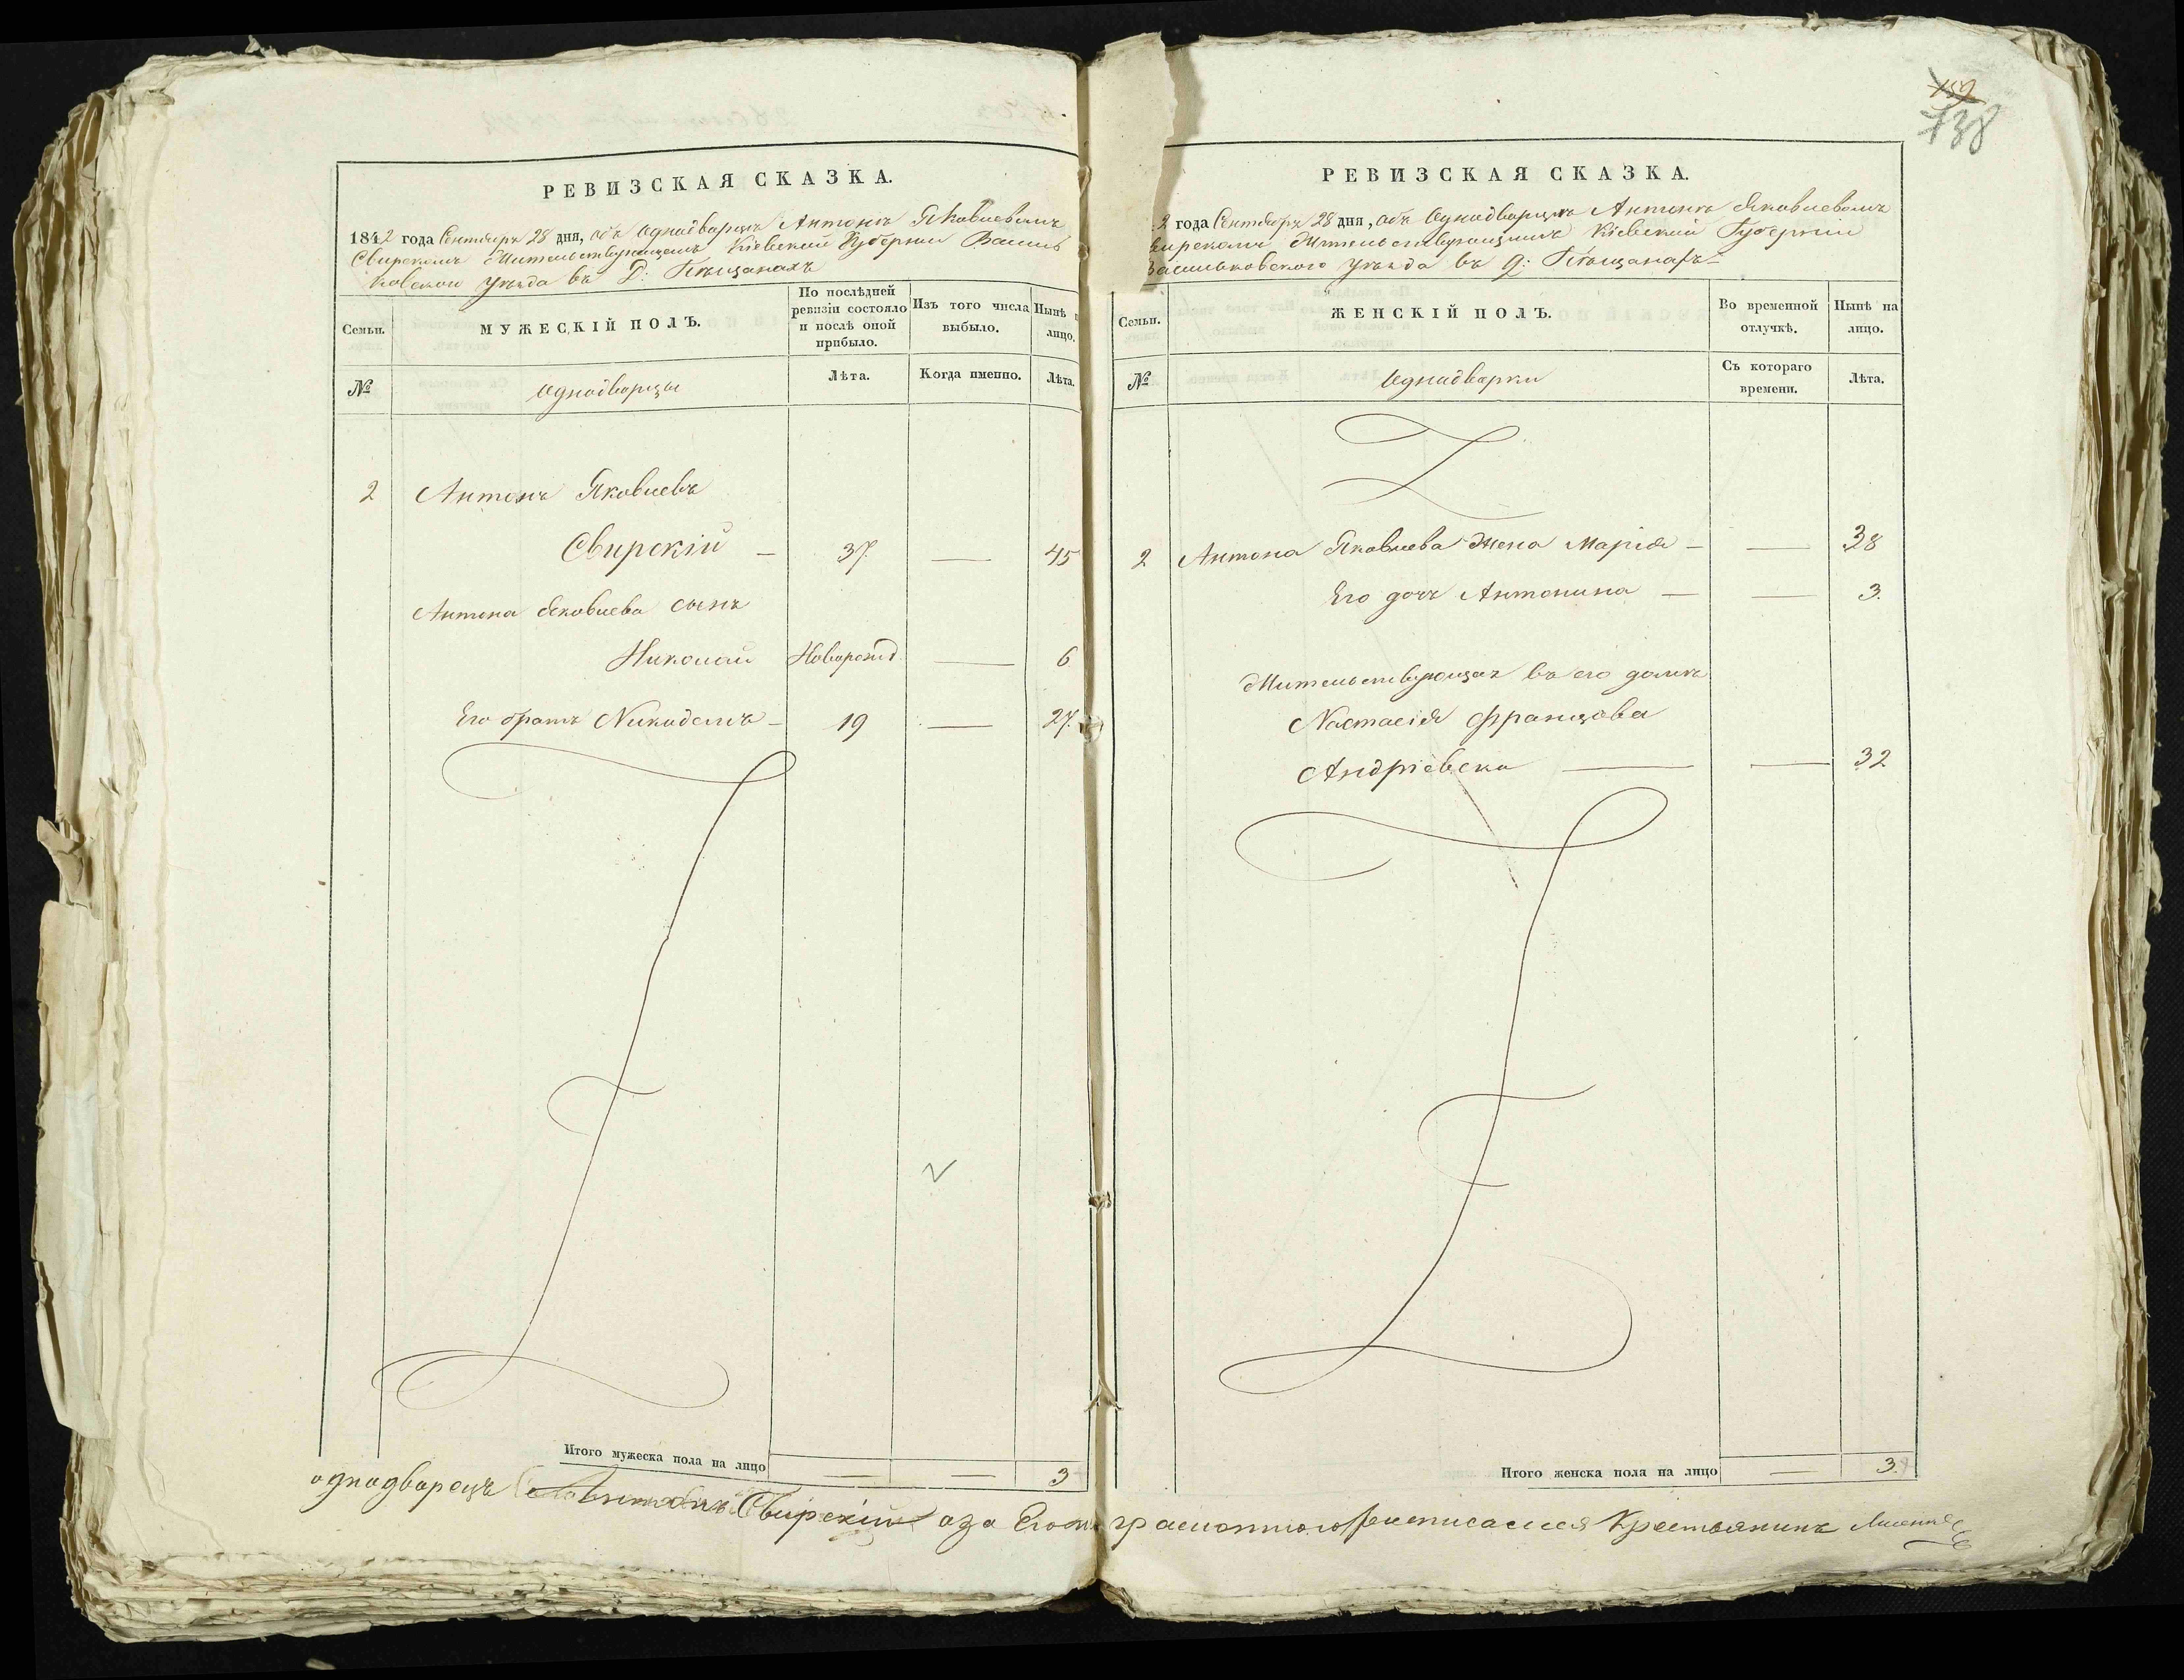 159
138
РЕВИЗСКАЯ СКАЗКА.
1842 года Сентября 28 дня, объ Однодворцѣ Антонѣ Яковлевомъ
Свирскомъ Жительствующемъ Кіевской Губерніи Василь
ковскои уѣзда въ Д: Пѣщанахъ
Семьи.
МУЖЕСКІЙ ПОЛЪ.
По послѣдней
ревизіи состояло
и послѣ оной
прибыло.
Изъ того числа
выбыло.
Нынѣ н
лицо.
№
Однодворцы
Лѣта.
Когда именно.
Лѣта.
2 Антонъ Яковлевъ
Свирскій — 37. — 45
Антона Яковлева сынъ
Николай Новорожд. — 6
Его братъ Никодемъ — 19 — 27.
Итого мужеска пола на лицо — — 3
РЕВИЗСКАЯ СКАЗКА.
2 года Сентября 28 дня, объ Однодворцѣ Антонѣ Яковлевомъ
вирскомъ Жительствующимъ Кіевской Губерніи
Васильковского уѣзда въ д: Пѣщанахъ
Семьи.
ЖЕНСКІЙ ПОЛЪ.
Во временной
отлучкѣ.
Нынѣ на
лицо.
№
Однодворки
Съ котораго
времени.
Лѣта.
2 Антона Яковлева жена Марія — — 38
Его дочь Антонина — — 3.
Жительствующая въ его домѣ
Настасія Францова
Андріевска — — 32
Итого женска пола на лицо — 3.
однодворецъ Антонъ Свирскій а за Его не грамотного росписался Крестьянинъ